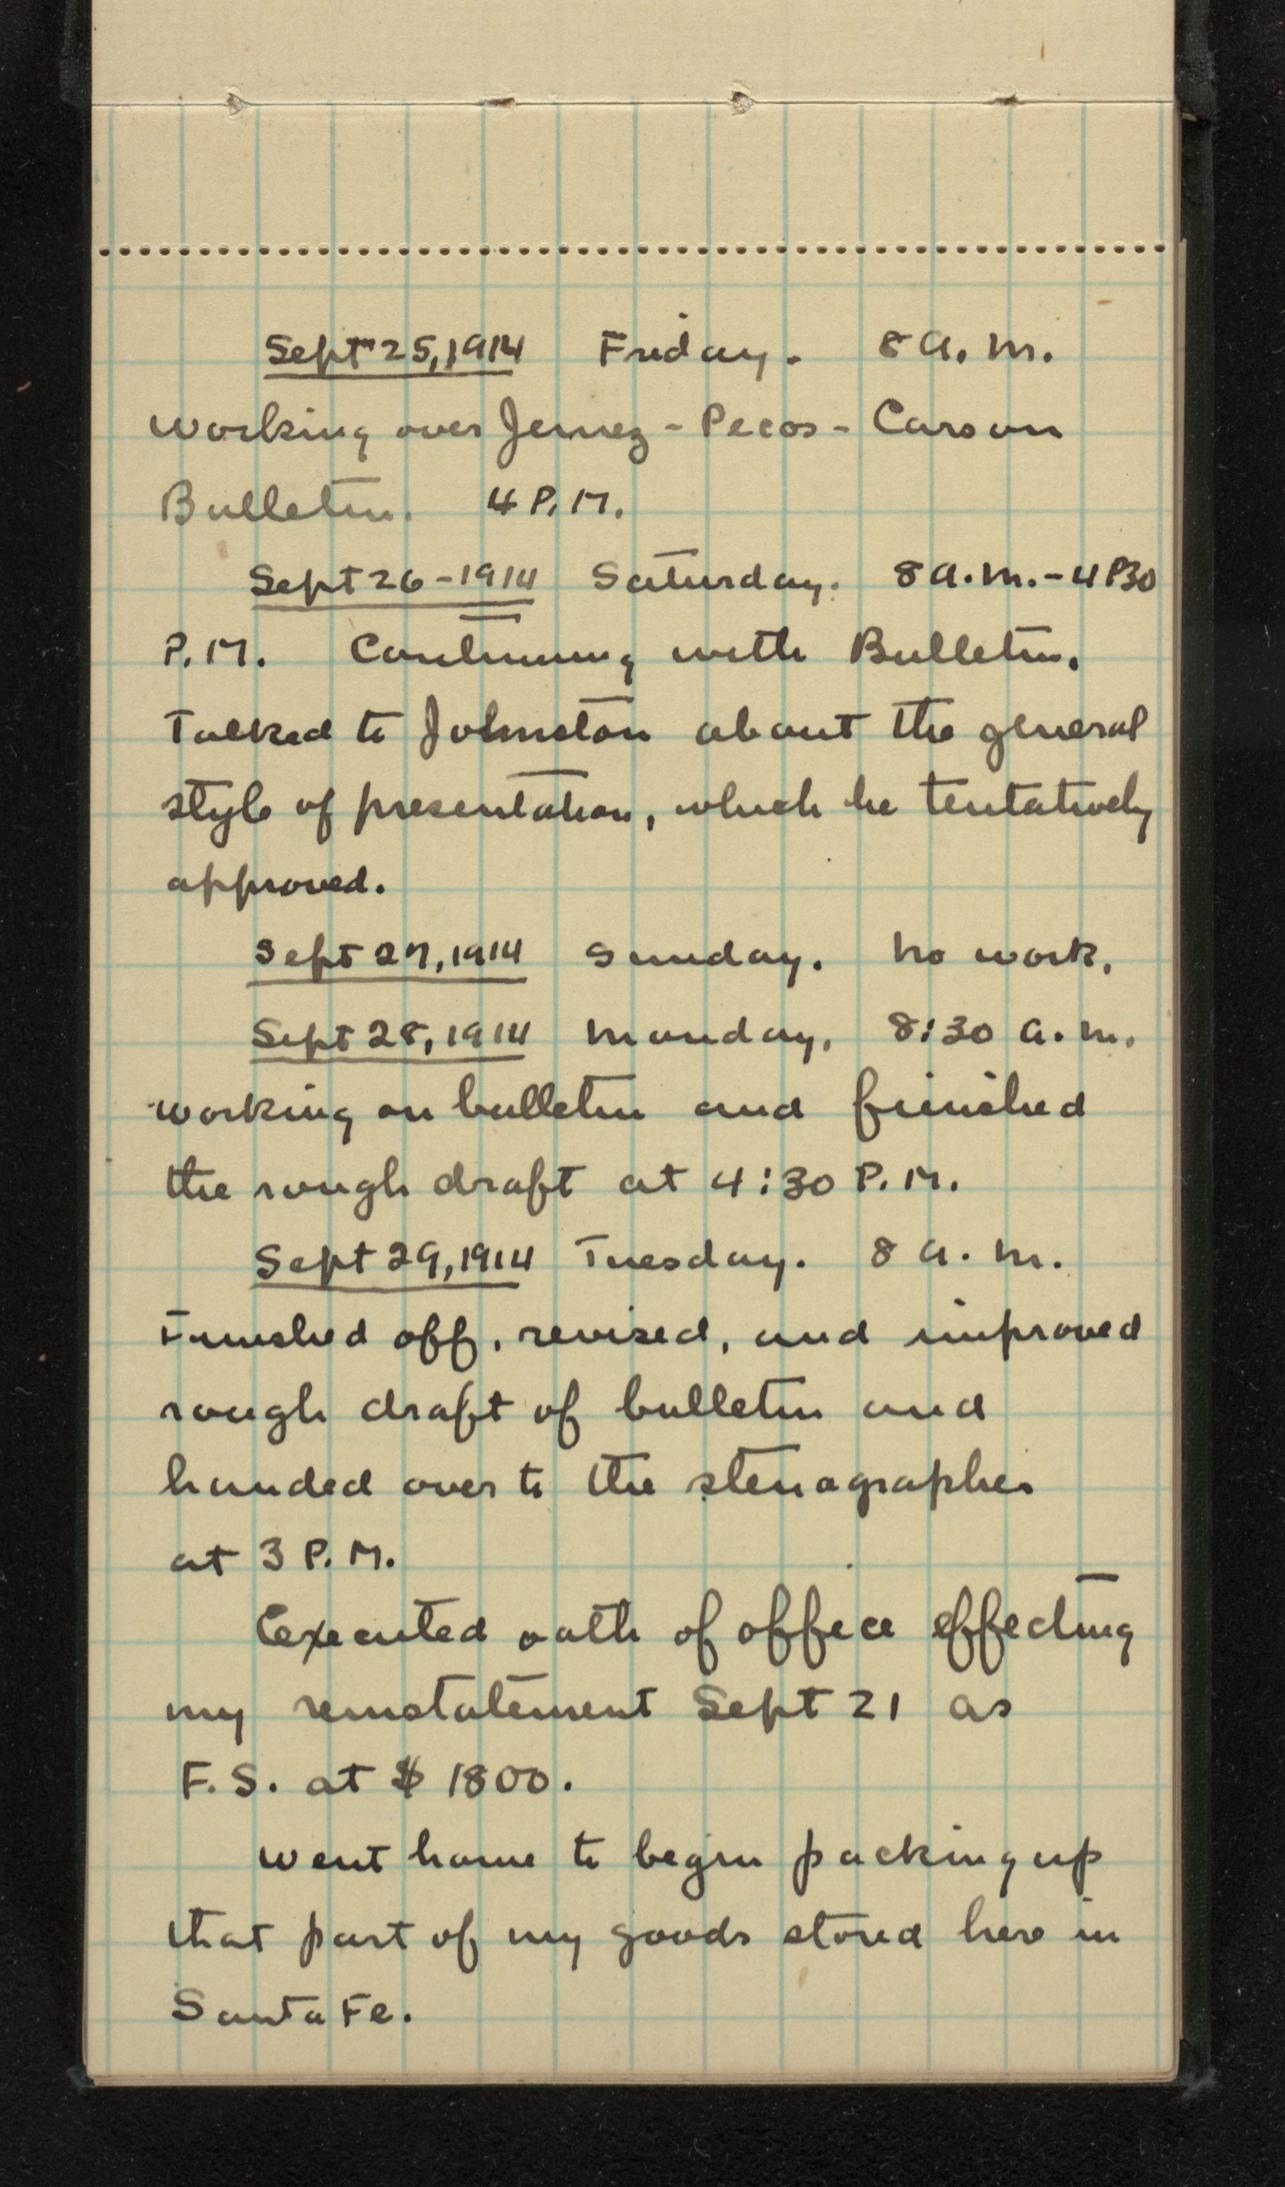 Sept 25, 1914 Friday. 8 a. m.
Working over Jemez - Pecos - Carson
Bulletin. 4 P. M.
Sept 26 - 1914 Saturday. 8 a. m. - 4 P30
P. M. Continuing with Bulletin.
Talked to Johnston about the general
style of presentation, which he tentatively
approved.
Sept 27, 1914 Sunday. No work.
Sept 28, 1914 Monday, 8:30 a. m.
Working on bulletin and finished
the rough draft at 4:30 P. M.
Sept 29, 1914 Tuesday. 8 a. m.
Finished off, revised, and improved
rough draft of bulletin and
handed over to the stenographer
at 3 P. M.
Executed oath of office effecting
my reinstatement Sept 21 as
F. S. at $ 1800.
Went home to begin packing up
that part of my goods stored here in
Santa Fe.